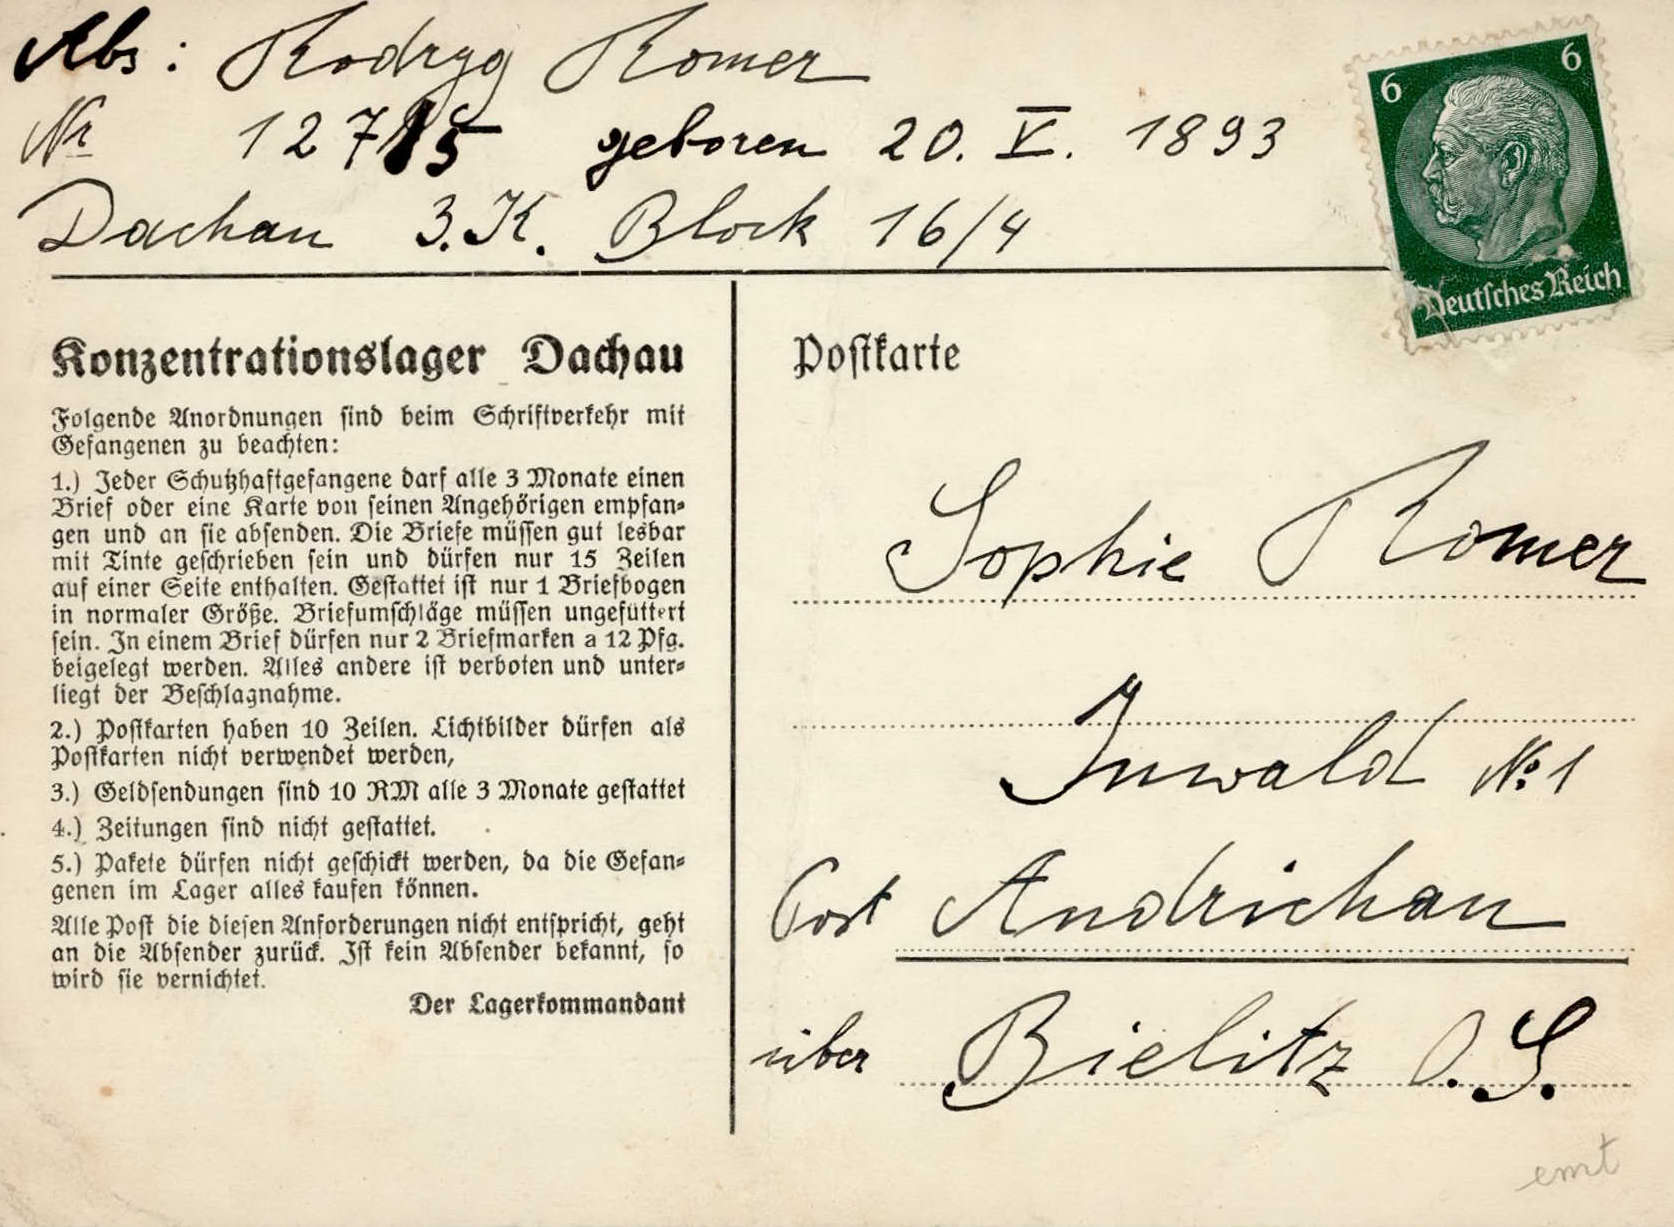 Abs: Rodryg Romer
Nr 12715 geboren 20. V. 1893
Dachau 3. K. Block 16/4
6 6
Deutsches Reich
Konzentrationslager Dachau
Folgende Anordnungen sind beim Schriftverkehr mit
Gefangenen zu beachten:
1.) Jeder Schutzhaftgefangene darf alle 3 Monate einen
Brief oder eine Karte von seinen Angehörigen empfan-
gen und an sie absenden. Die Briefe müssen gut lesbar
mit Tinte geschrieben sein und dürfen nur 15 Zeilen
auf einer Seite enthalten. Gestattet ist nur 1 Briefbogen
in normaler Größe. Briefumschläge müssen ungefüttert
sein. In einem Brief dürfen nur 2 Briefmarken a 12 Pfg.
beigelegt werden. Alles andere ist verboten und unter-
liegt der Beschlagnahme.
2.) Postkarten haben 10 Zeilen. Lichtbilder dürfen als
Postkarten nicht verwendet werden,
3.) Geldsendungen sind 10 RM alle 3 Monate gestattet
4.) Zeitungen sind nicht gestattet.
5.) Pakete dürfen nicht geschickt werden, da die Gefan-
genen im Lager alles kaufen können.
Alle Post die diesen Anforderungen nicht entspricht, geht
an die Absender zurück. Ist kein Absender bekannt, so
wird sie vernichtet.
Der Lagerkommandant
Postkarte
Sophie Romer
Inwald No. 1
Post Andrichau
über Bielitz O. S.